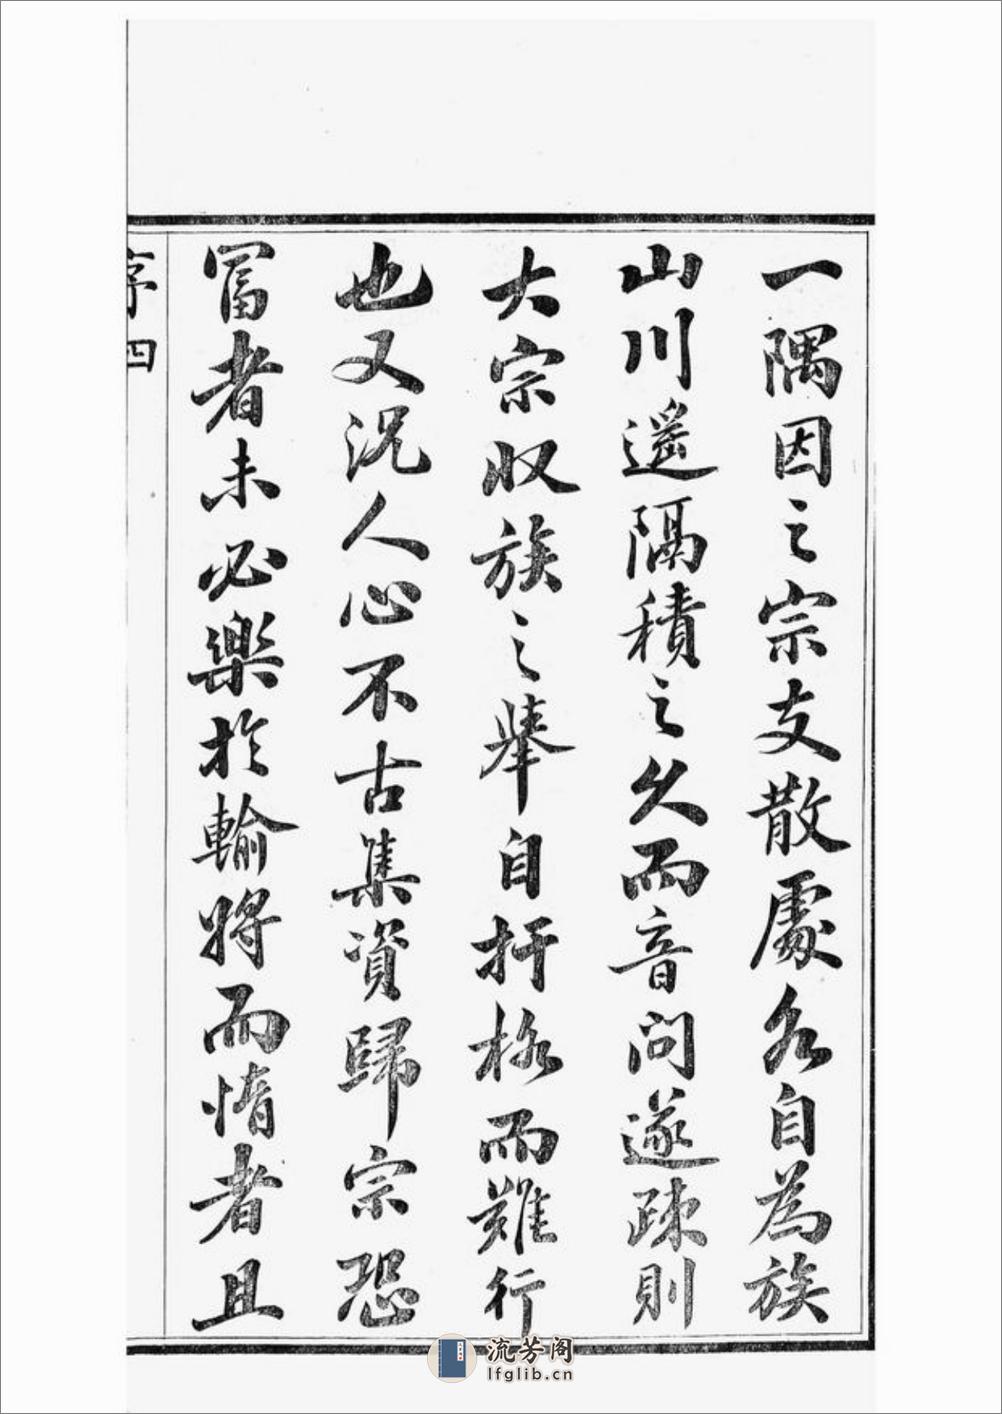 一隅因之宗支散處各自為族
山川遥隔積之久而音問遂疎則
大宗收族之舉自扞格而難行
也又况人心不古集資歸宗恐
冨者未必樂於輸將而惰者且
序 四
流芳阁
lfglib.cn